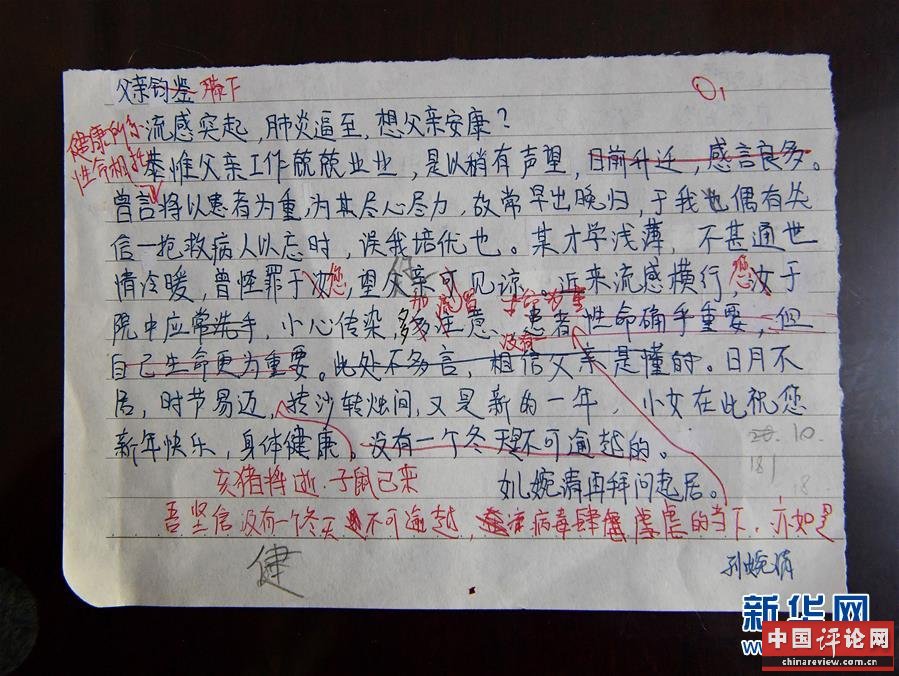 父亲钧鉴 膝下
流感突起，肺炎逼至，想父亲安康？
健康所系
性命相托
恭惟父亲工作兢兢业业，是以稍有声望，目前升迁，感言良多。
曾言将以患者为重，为其尽心尽力，故常早出晚归，于我也偶有失
信一抢救病人以忘时，误我培优也。某才学浅薄，不甚通世
情冷暖，曾怪罪于汝，望父亲可见谅。近来流感横行，汝于
您
您
院中应常洗手，小心传染，多注意，患者性命确乎重要，但
没有
自己生命更为重要。此处不多言，相信父亲是懂的。日月不
居，时节易迈，转沙转烛间，又是新的一年，小女在此祝您
新年快乐，身体健康。没有一个冬天不可逾越的。
20.10.
181
18
亥猪将逝，子鼠已来
女儿婉清再拜问起居。
吾坚信没有一个冬天不可逾越，病毒肆虐的当下，亦如是
健
新华网
中国评论网
chinareview.com.cn